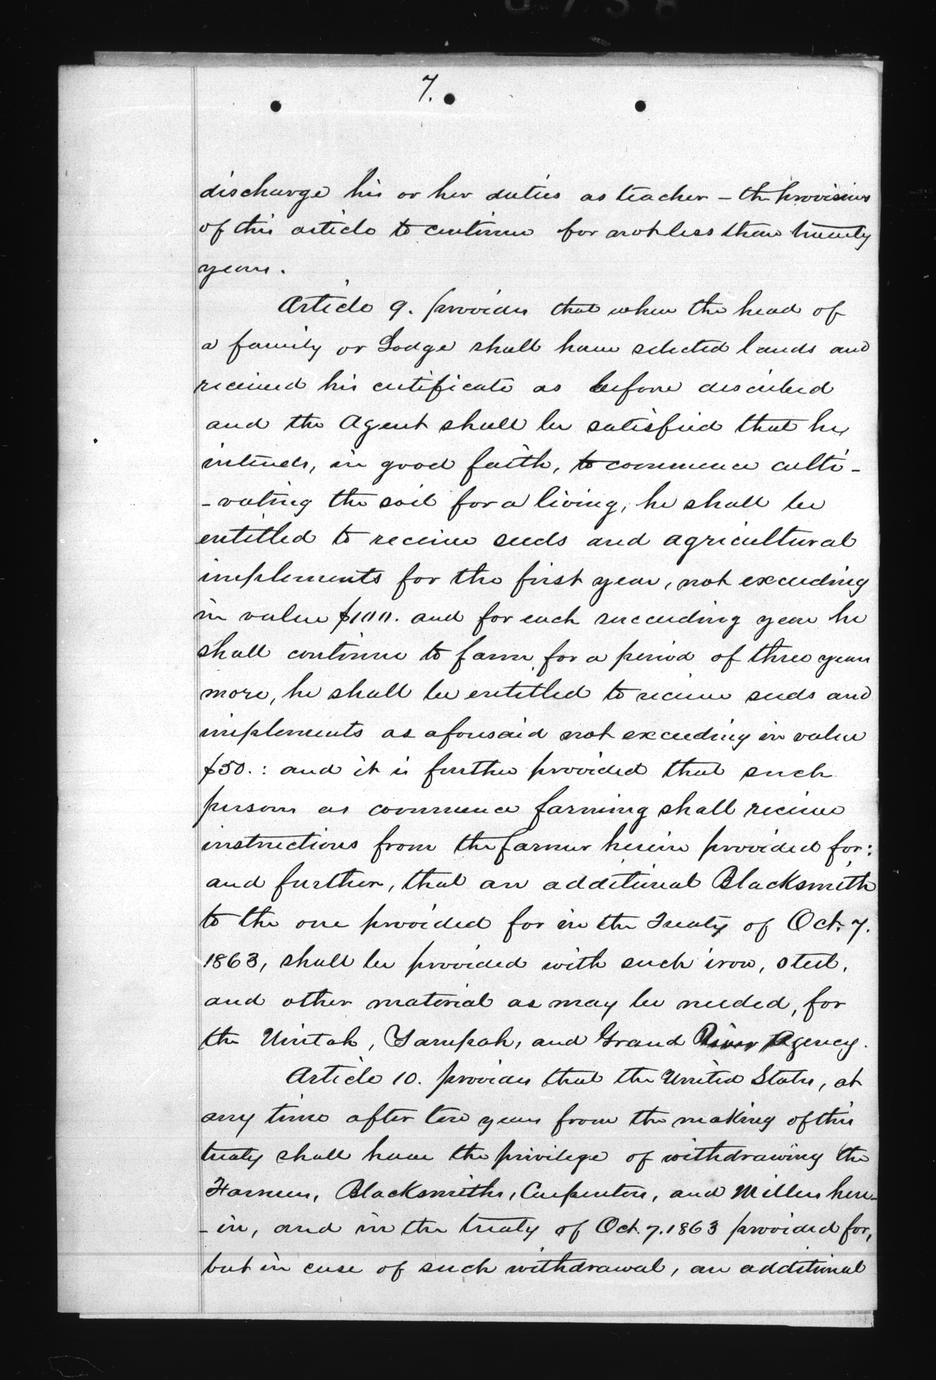 7.
discharge his or her duties as teacher – the provisions
of this article to continue for not less than twenty
years.
Article 9. provides that when the head of
a family or Lodge shall have selected lands and
received his certificate as before described
and the Agent shall be satisfied that he
intends, in good faith, to commence culti-
-vating the soil for a living, he shall be
entitled to receive seeds and agricultural
implements for the first year, not exceeding
in value $100. and for each succeeding year he
shall continue to farm for a period of three years
more, he shall be entitled to receive seeds and
implements as aforesaid not exceeding in value
$50.: and it is further provided that such
persons as commence farming shall receive
instructions from the farmer herein provided for:
and further, that an additional Blacksmith
to the one provided for in the Treaty of Oct. 7.
1863, shall be provided with such iron, steel,
and other material as may be needed, for
the Uintah, Yampah, and Grand River Agency.
Article 10. provides that the United States, at
any time after ten years from the making of this
treaty shall have the privilege of withdrawing the
Farmers, Blacksmiths, Carpenters, and Millers here-
-in, and in the treaty of Oct. 7. 1863 provided for,
but in case of such withdrawal, an additional